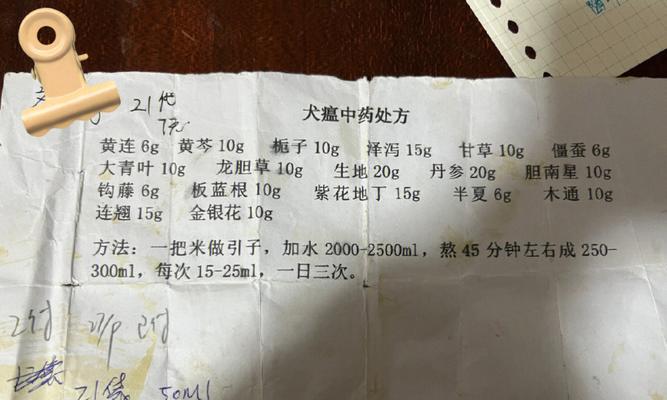 21代
7元
犬瘟中药处方
黄连 6g 黄芩 10g 栀子 10g 泽泻 15g 甘草 10g 僵蚕 6g
大青叶 10g 龙胆草 10g 生地 20g 丹参 20g 胆南星 10g
钩藤 6g 板蓝根 10g 紫花地丁 15g 半夏 6g 木通 10g
连翘 15g 金银花 10g
方法：一把米做引子，加水 2000-2500ml，熬 45 分钟左右成 250-
300ml，每次 15-25ml，一日三次。
2付 已付
21袋 50ml